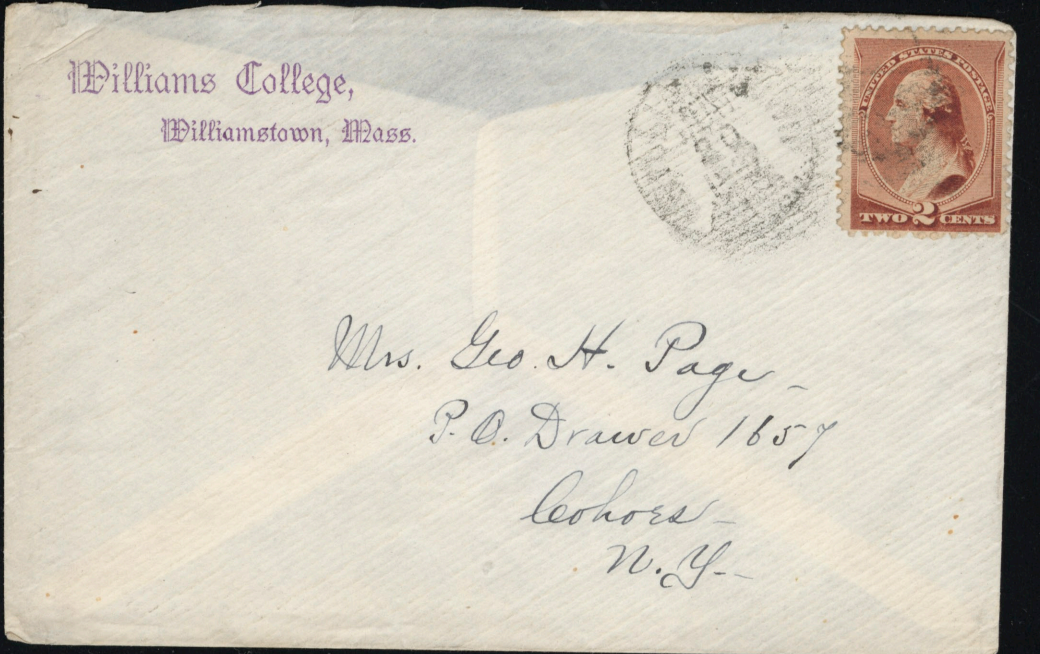 Williams College,
Williamstown, Mass.
UNITED STATES POSTAGE
TWO 2 CENTS
Mrs. Geo. H. Page
P.O. Drawer 1657
Cohoes
N.Y.